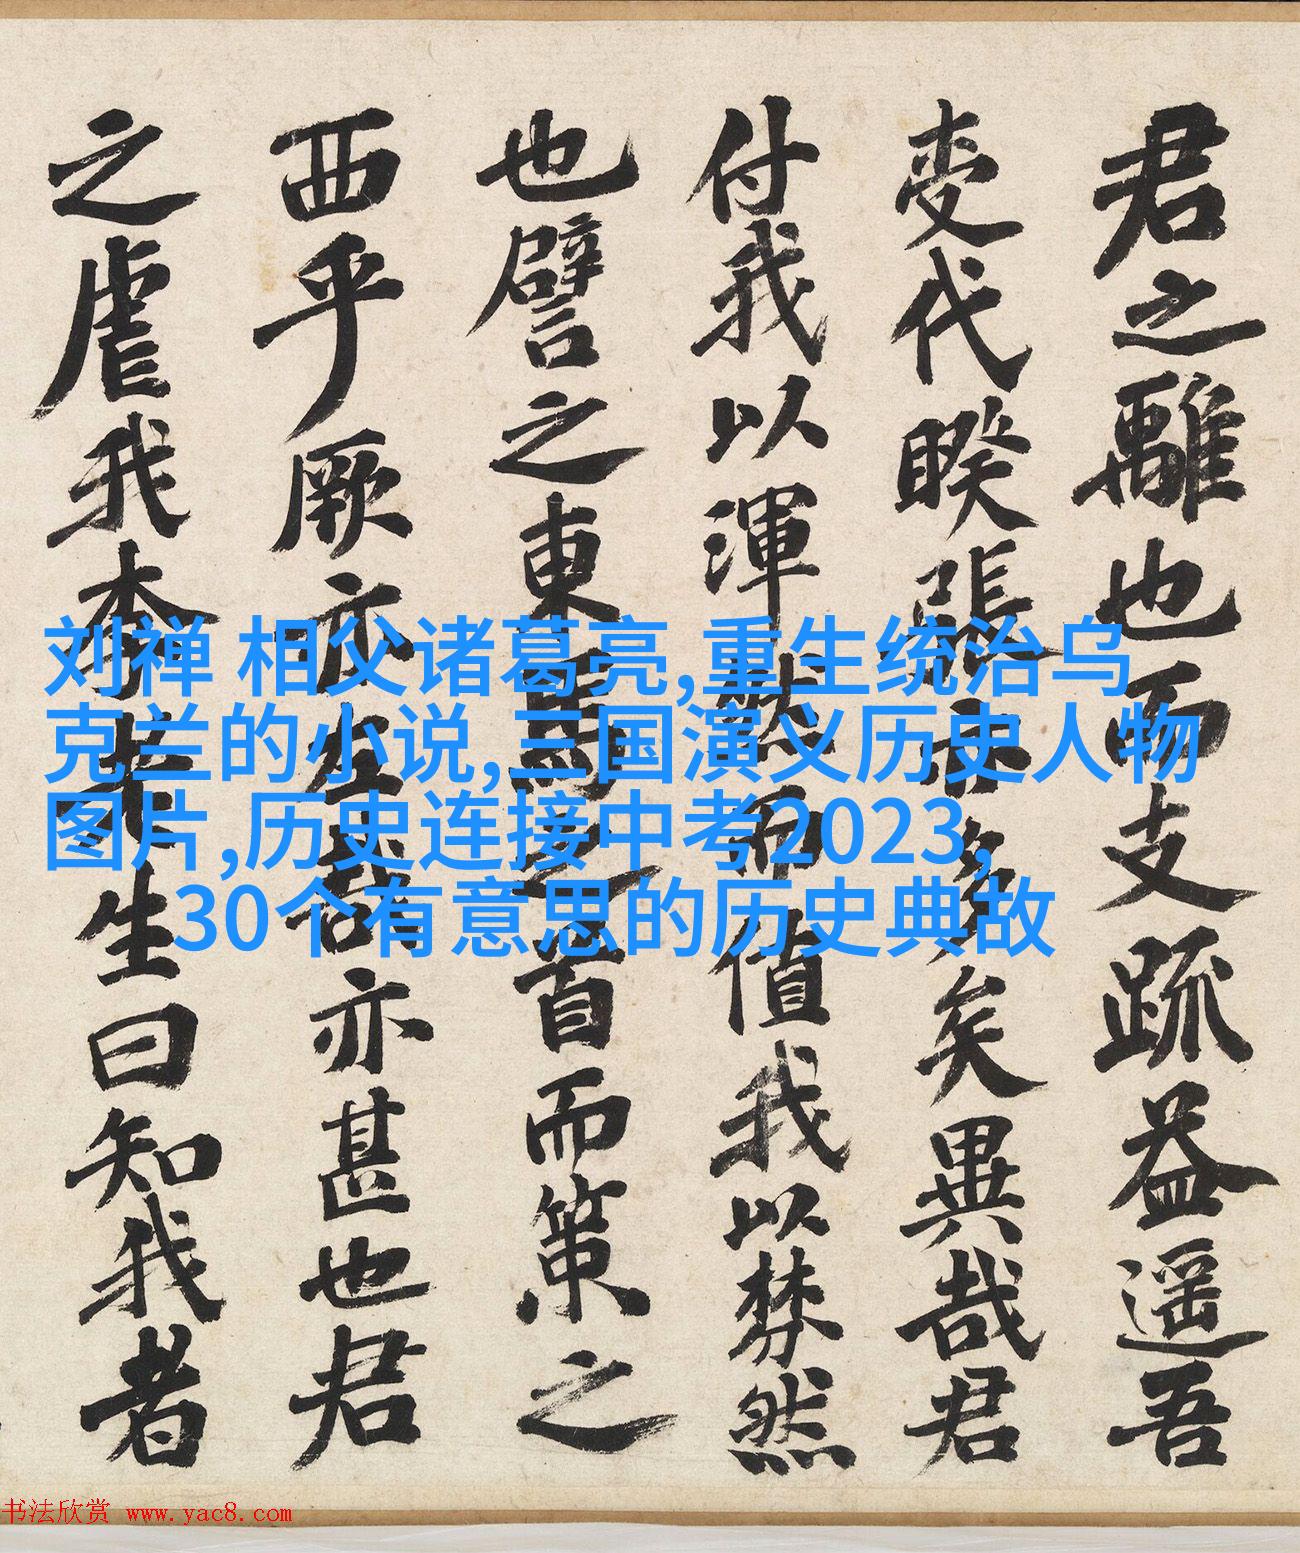 君之離也而支疏益遥吾
变代睽張亦多矣異哉君
付我以渾然而值我以棼然
也譬之東馬之首而策之
西乎厥亦生哉亦甚也君
之虐我李非生曰知我者
刘禅 相父诸葛亮,重生统治乌
克兰的小说,三国演义历史人物
图片,历史连接中考2023,
30个有意思的历史典故
书法欣赏 www.yac8.com